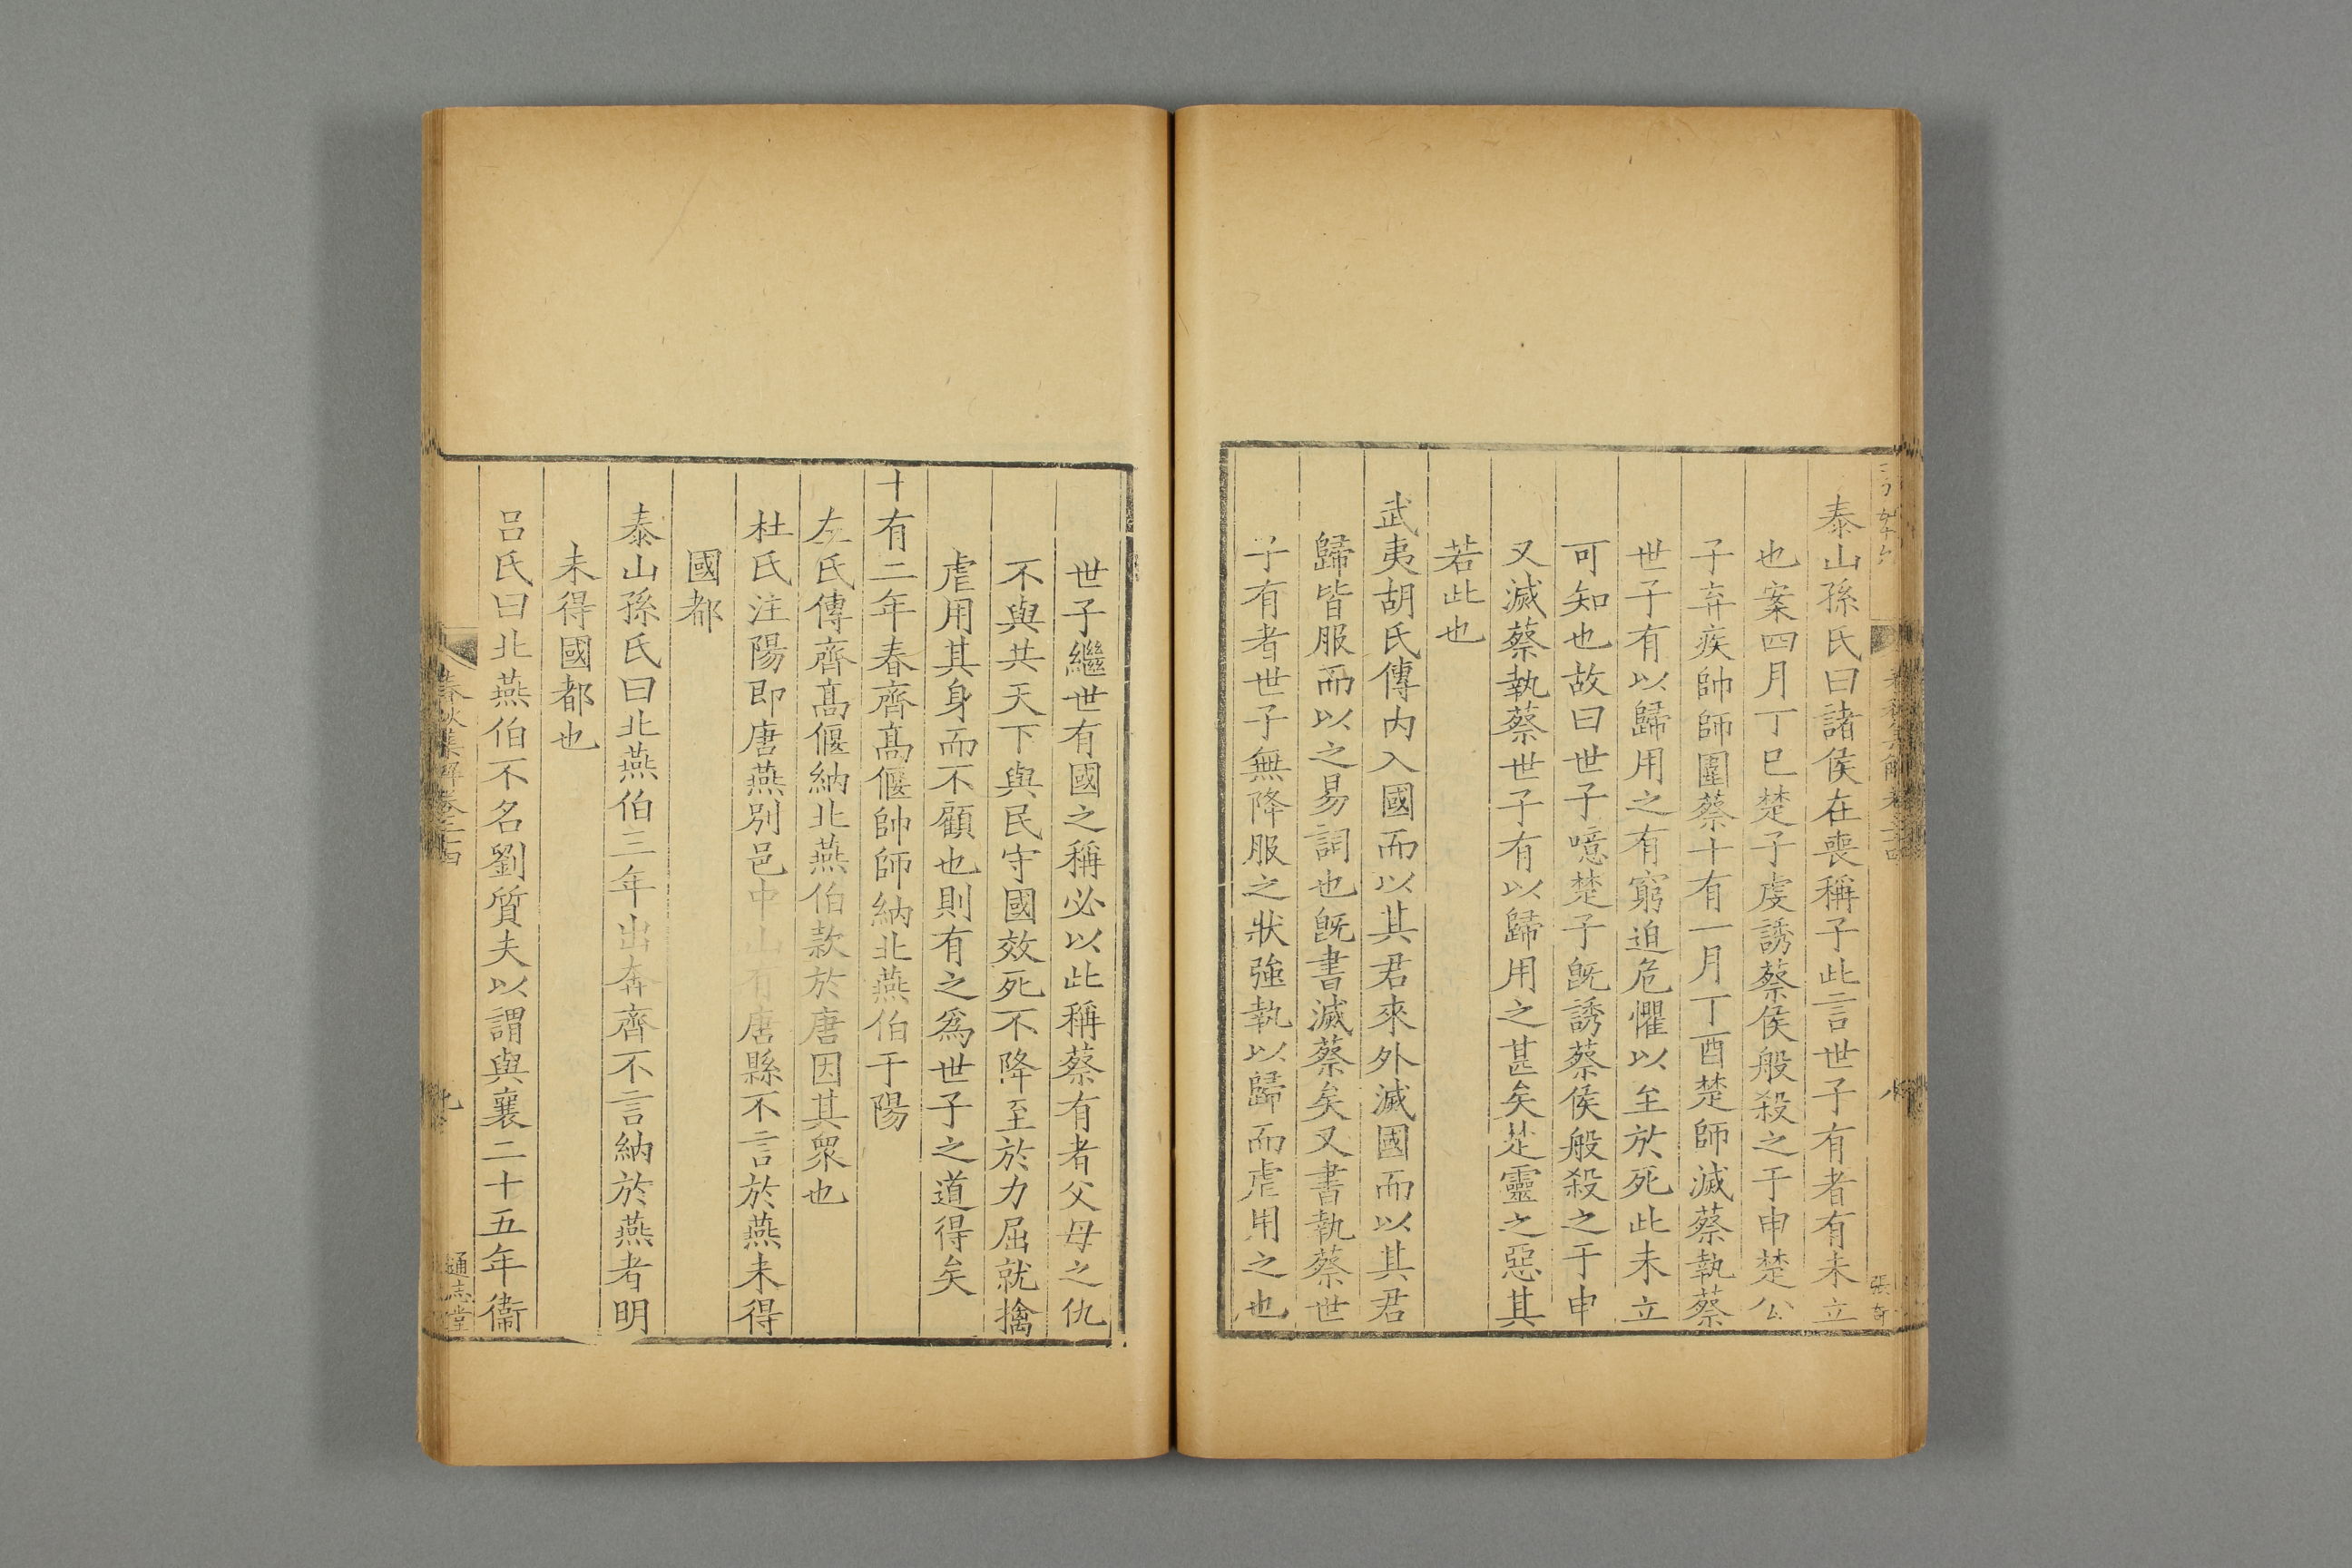 泰山孫氏曰諸侯在喪稱子此言世子有者有未立
也案四月丁巳楚子虔誘蔡侯般殺之于申楚公
子弃疾帥師圍蔡十有一月丁酉楚師滅蔡執蔡
世子有以歸用之有窮迫危懼以至於死此未立
可知也故曰世子噫楚子旣誘蔡侯般殺之于申
又滅蔡執蔡世子有以歸用之甚矣楚靈之惡其
若此也
武夷胡氏傳内入國而以其君來外滅國而以其君
歸皆服而以之易詞也旣書滅蔡矣又書執蔡世
子有者世子無降服之狀強執以歸而虐用之也
世子繼世有國之稱必以此稱蔡有者父母之仇
不與共天下與民守國效死不降至於力屈就擒
虐用其身而不顧也則有之爲世子之道得矣
十有二年春齊髙偃帥師納北燕伯于陽
左氏傳齊髙偃納北燕伯款於唐因其衆也
杜氏注陽即唐燕別邑中山有唐縣不言於燕未得
國都
泰山孫氏曰北燕伯三年出奔齊不言納於燕者明
未得國都也
吕氏曰北燕伯不名劉質夫以謂與襄二十五年衞
春秋集解卷二十四
九
通志堂